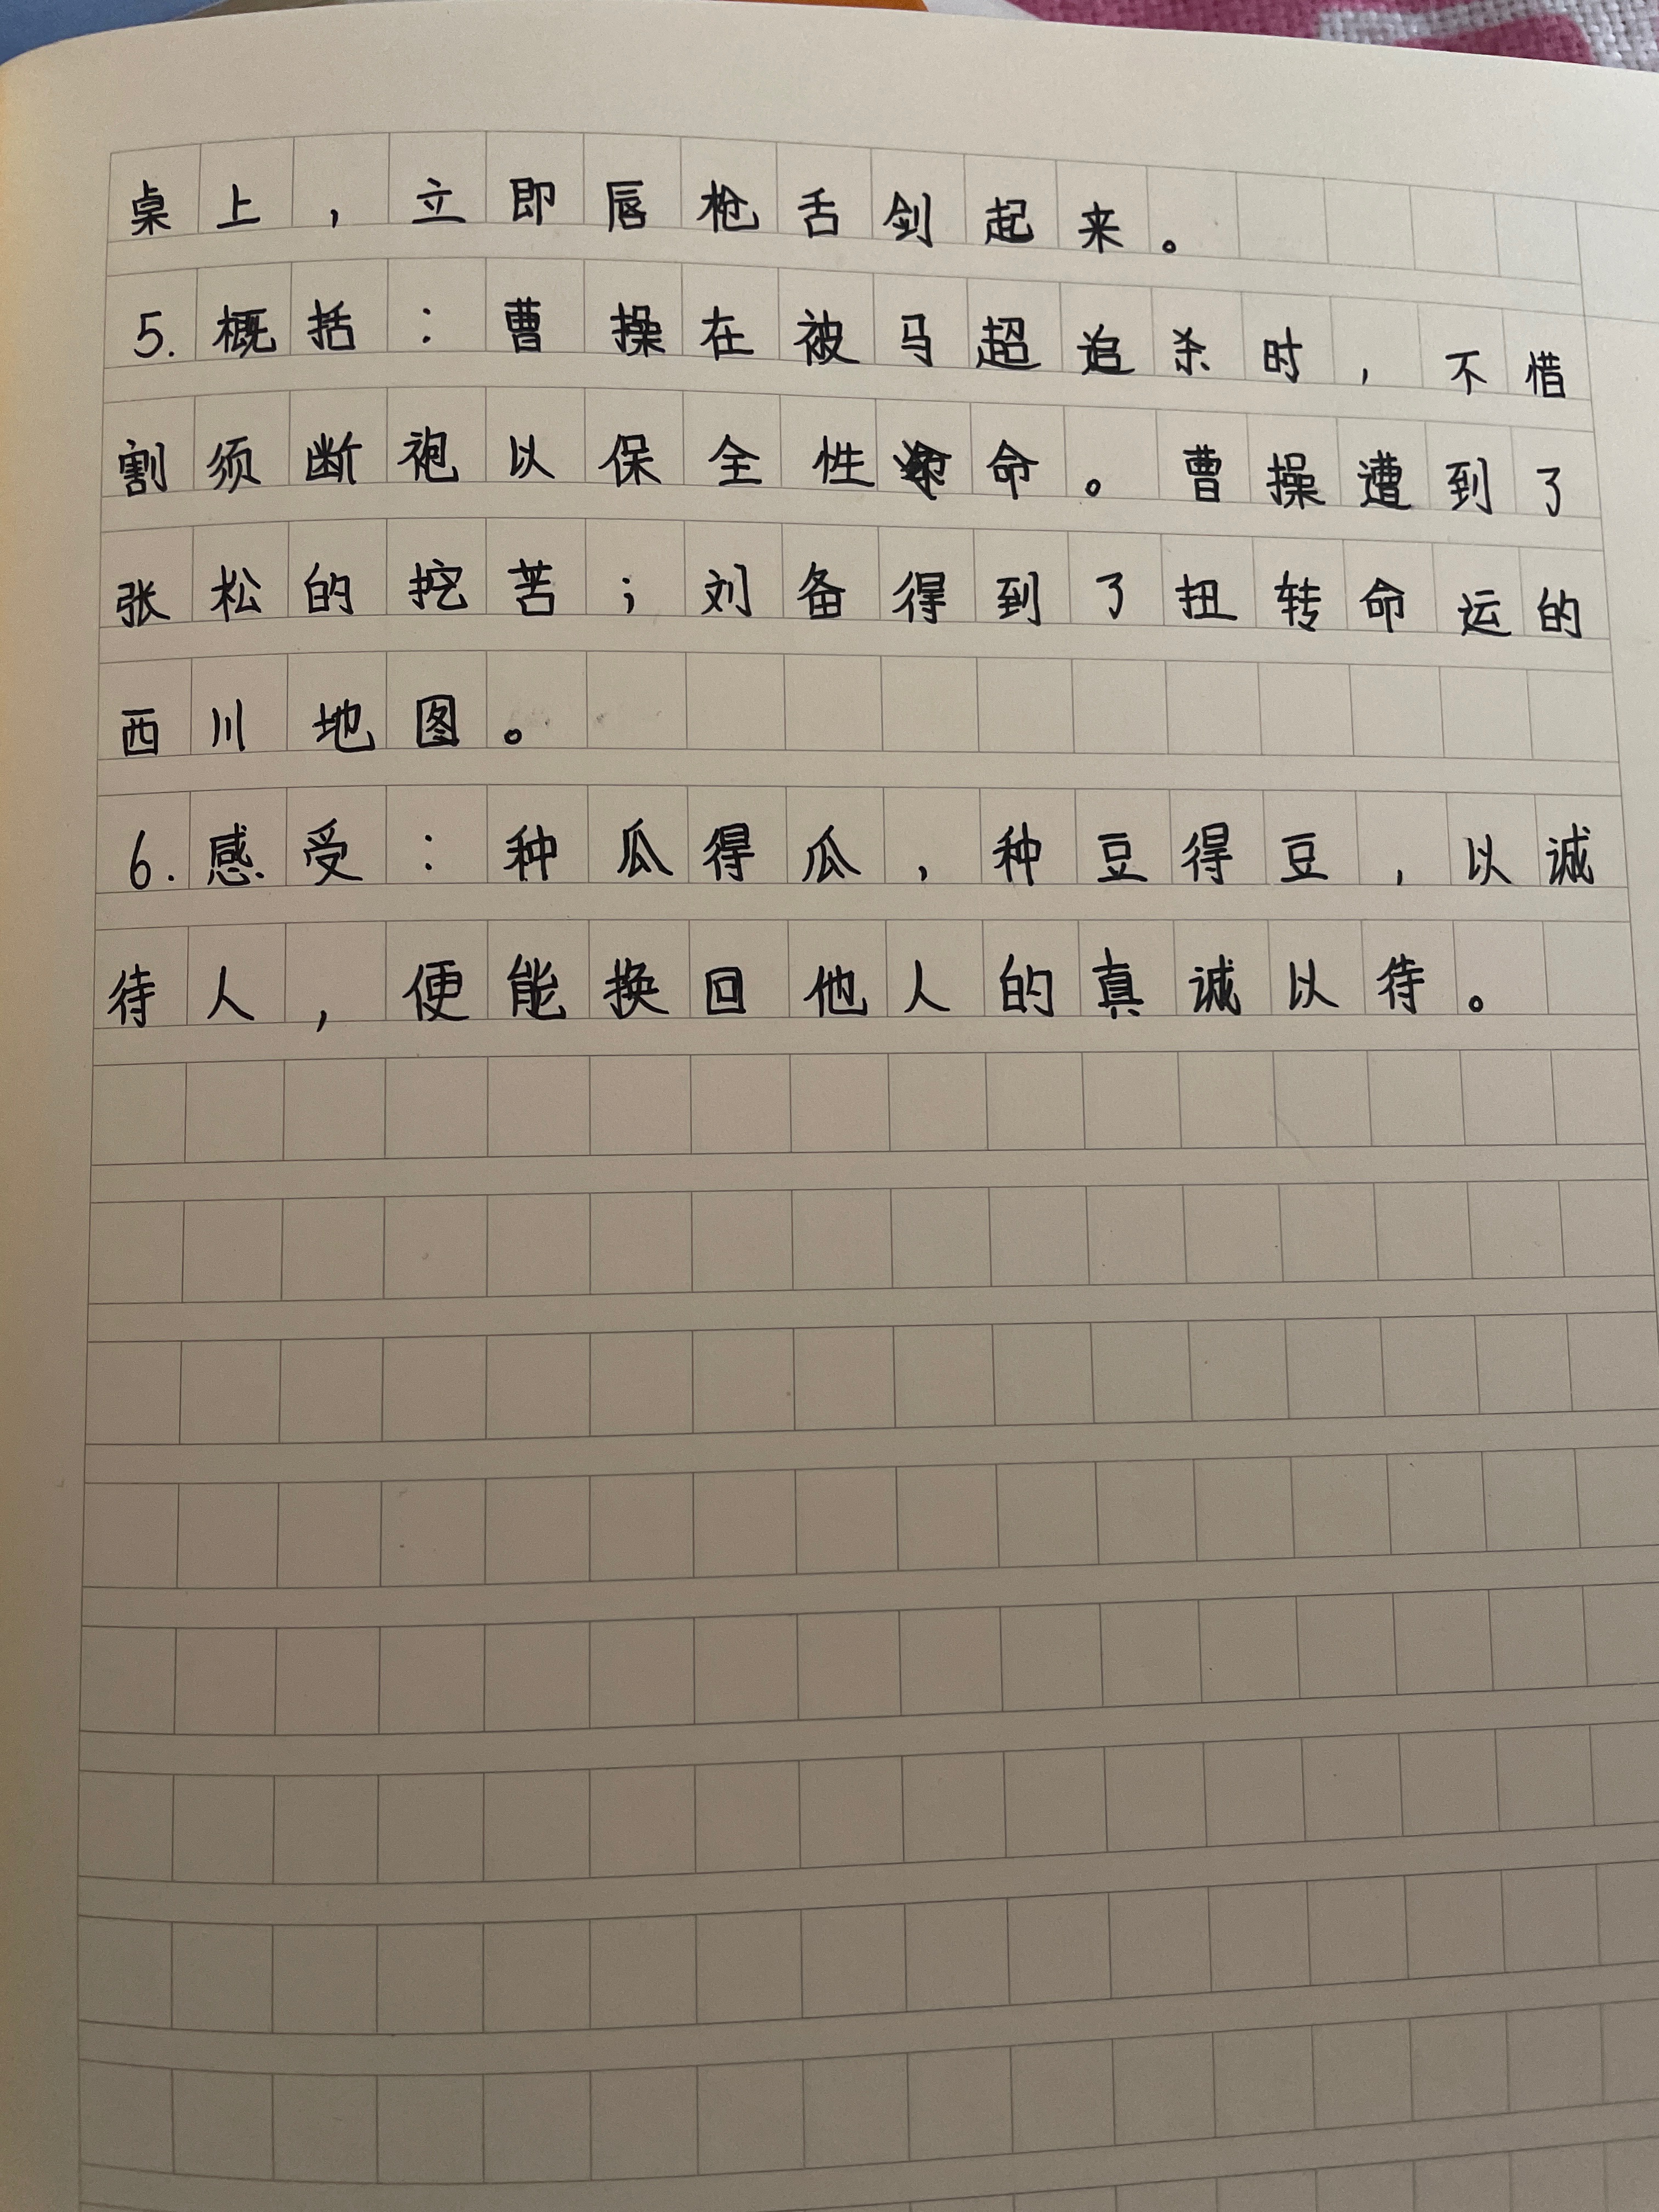 桌上，立即唇枪舌剑起来。
5.概括：曹操在被马超追杀时，不惜
割须断袍以保全性命。曹操遭到了
张松的挖苦；刘备得到了扭转命运的
西川地图。
6.感受：种瓜得瓜，种豆得豆，以诚
待人，便能换回他人的真诚以待。